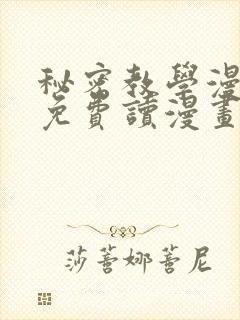 秘密教學漫
免費讀漫畫
莎蒼娜蒼尼